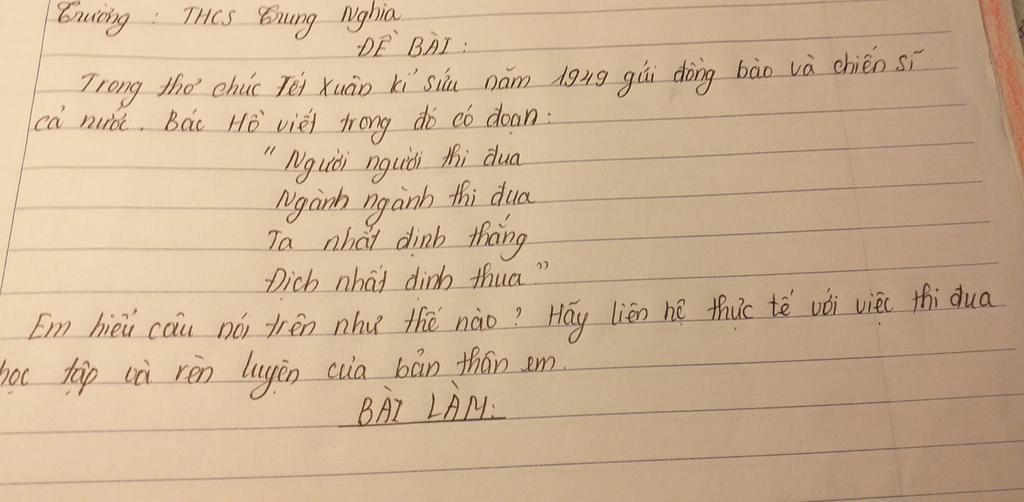 Trường : THCS Trung Nghĩa
ĐỀ BÀI :
Trong thơ chúc Tết Xuân kỉ sửu năm 1949 gửi đồng bào và chiến sĩ
cả nước. Bác Hồ viết trong đó có đoạn :
" Người người thi đua
Ngành ngành thi đua
Ta nhất định thắng
Địch nhất định thua "
Em hiểu câu nói trên như thế nào ? Hãy liên hệ thực tế với việc thi đua
học tập và rèn luyện của bản thân em.
BÀI LÀM: